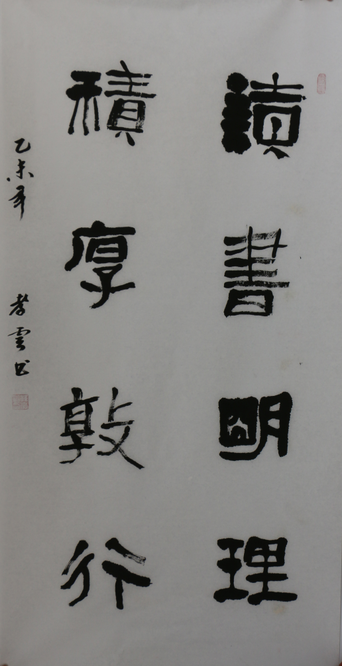 讀書明理
積厚敦行
乙未年 孝雲書